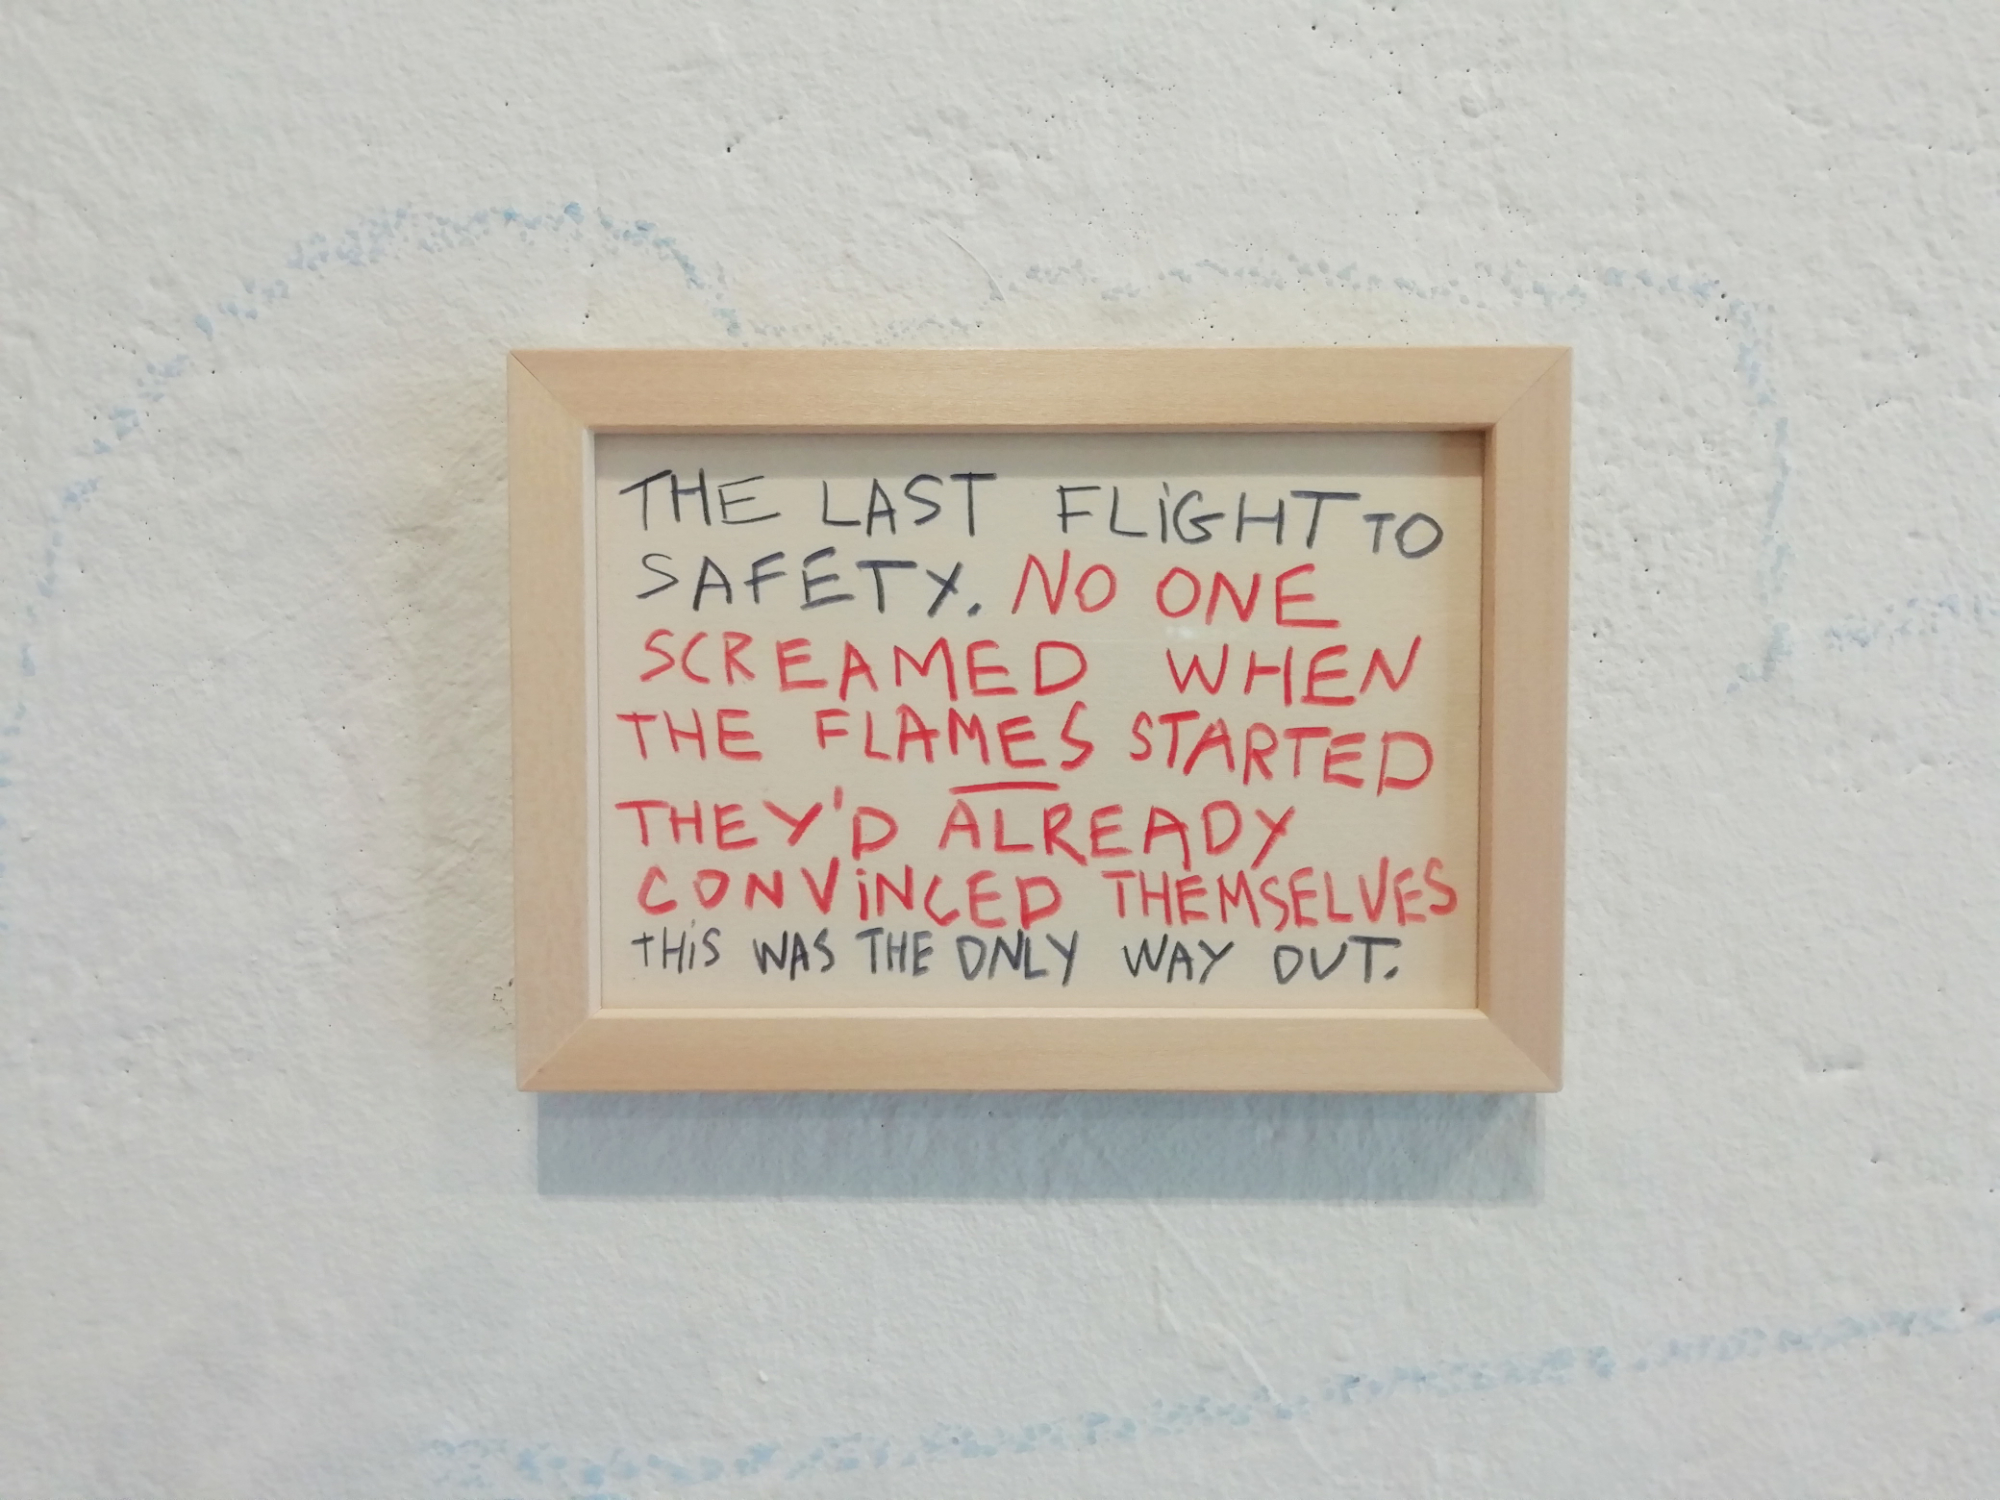 THE LAST FLiGHT TO
SAFETY. NO ONE
SCREAMED WHEN
THE FLAMES STARTED
THEY'D ALREADY
CONViNCED THEMSELVES
tHiS WAS THE ONLY WAY OUT.